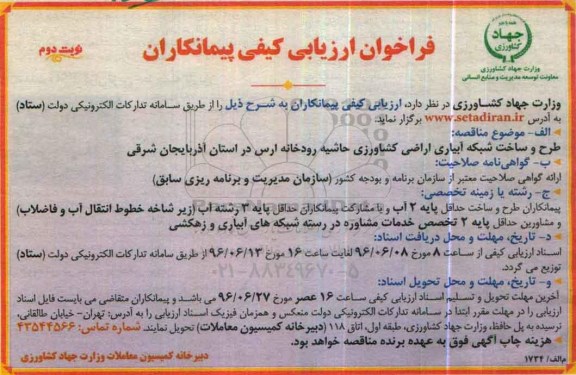 جهاد
کشاورزی
وزارت جهاد کشاورزی
معاونت توسعه مدیریت و منابع انسانی
فراخوان ارزیابی کیفی پیمانکاران
نوبت دوم
وزارت جهاد کشاورزی در نظر دارد، ارزیابی کیفی پیمانکاران به شرح ذیل را از طریق سامانه تدارکات الکترونیکی دولت (ستاد)
به آدرس www.setadiran.ir برگزار نماید.
الف- موضوع مناقصه:
طرح و ساخت شبکه آبیاری اراضی کشاورزی حاشیه رودخانه ارس در استان آذربایجان شرقی
ب- گواهی‌نامه صلاحیت:
ارائه گواهی صلاحیت معتبر از سازمان برنامه و بودجه کشور (سازمان مدیریت و برنامه ریزی سابق)
ج- رشته یا زمینه تخصصی:
پیمانکاران طرح و ساخت حداقل پایه ۲ آب و یا مشارکت پیمانکاران حداقل پایه ۳ رشته آب (زیر شاخه خطوط انتقال آب و فاضلاب)
و مشاورین حداقل پایه ۲ تخصص خدمات مشاوره در رسته شبکه های آبیاری و زهکشی
د- تاریخ، مهلت و محل دریافت اسناد:
اسناد ارزیابی کیفی از ساعت ۸ مورخ ۹۶/۰۶/۰۸ لغایت ساعت ۱۶ مورخ ۹۶/۰۶/۱۳ از طریق سامانه تدارکات الکترونیکی دولت (ستاد)
توزیع می گردد.
۰۲۱-۸۸۳۴۹۶۷۰-۵
ه- تاریخ، مهلت و محل تحویل اسناد:
آخرین مهلت تحویل و تسلیم اسناد ارزیابی کیفی ساعت ۱۶ عصر مورخ ۹۶/۰۶/۲۷ می باشد و پیمانکاران متقاضی می بایست فایل اسناد
ارزیابی را در مهلت مقرر ابتدا در سامانه تدارکات الکترونیکی دولت منعکس و همزمان فیزیک اسناد ارزیابی را به آدرس: تهران- خیابان طالقانی،
نرسیده به پل حافظ، وزارت جهاد کشاورزی، طبقه اول، اتاق ۱۱۸ (دبیرخانه کمیسیون معاملات) تحویل نمایند. شماره تماس: ۴۳۵۴۴۵۶۶
هزینه چاپ آگهی فوق به عهده برنده مناقصه خواهد بود.
دبیرخانه کمیسیون معاملات وزارت جهاد کشاورزی
م/الف/ ۱۷۳۴